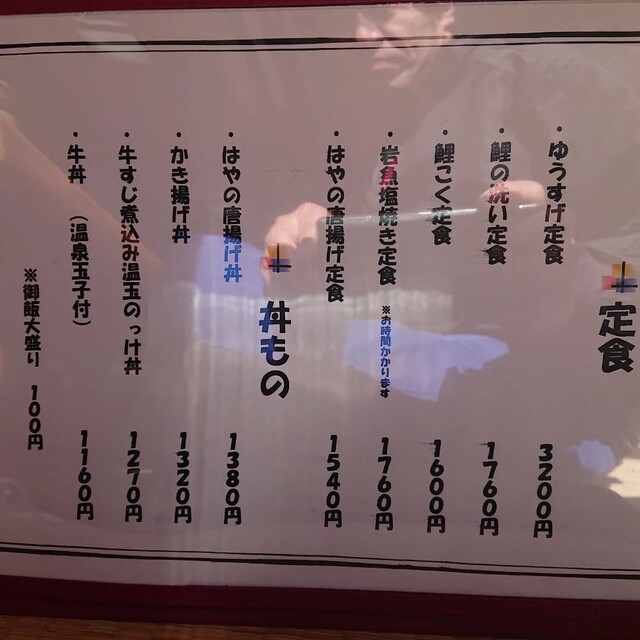 定食
・ゆうすげ定食 3200円
・鯉の洗い定食 1760円
・鯉こく定食 1600円
・岩魚塩焼き定食 ※お時間かかります 1760円
・はやの唐揚げ定食 1540円
丼もの
・はやの唐揚げ丼 1380円
・かき揚げ丼 1320円
・牛すじ煮込み温玉のっけ丼 1270円
・牛丼 (温泉玉子付) 1160円
※御飯大盛り 100円